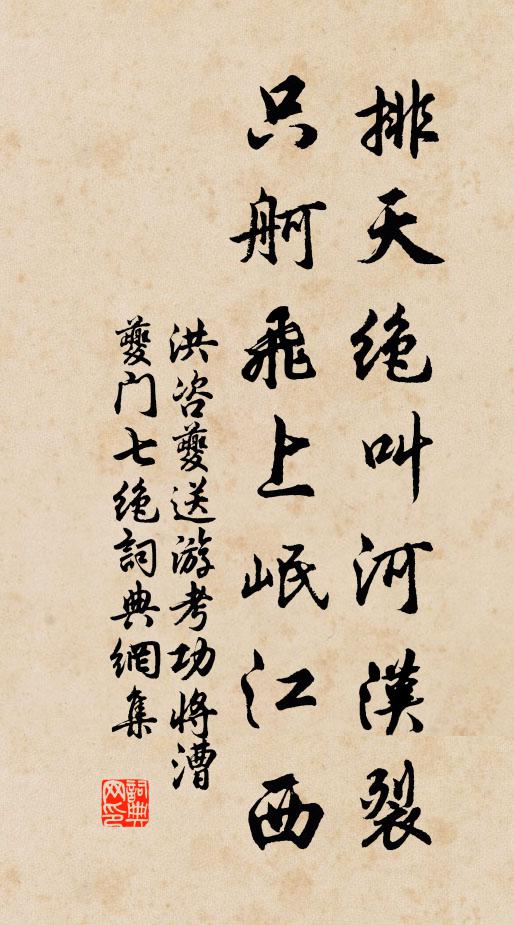 排天绝叫河漢裂
只舸飛上岷江西
洪咨夔送游考功将漕
夔门七绝詞典網集
詞典
网印